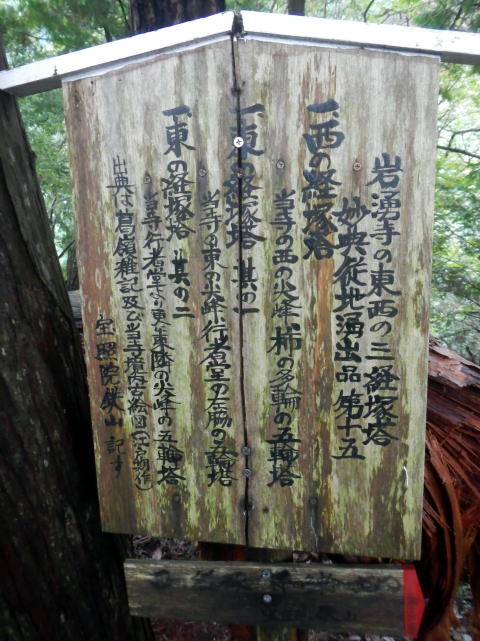 岩湧寺の東西の三経塚塔
妙典従地涌出品第十五
一、西の経塚塔
当寺の西の尖峰 柿の多輪の五輪塔
一、東の経塚塔 其の一
当寺の東の尖峰行者堂の左脇の五輪塔
一、東の経塚塔 其の二
当寺行者堂より更に東隣の尖峰の五輪塔
出典は葛嶺雑記及び当寺境内古絵図(江戸期作)
宗照院鉄山 記す